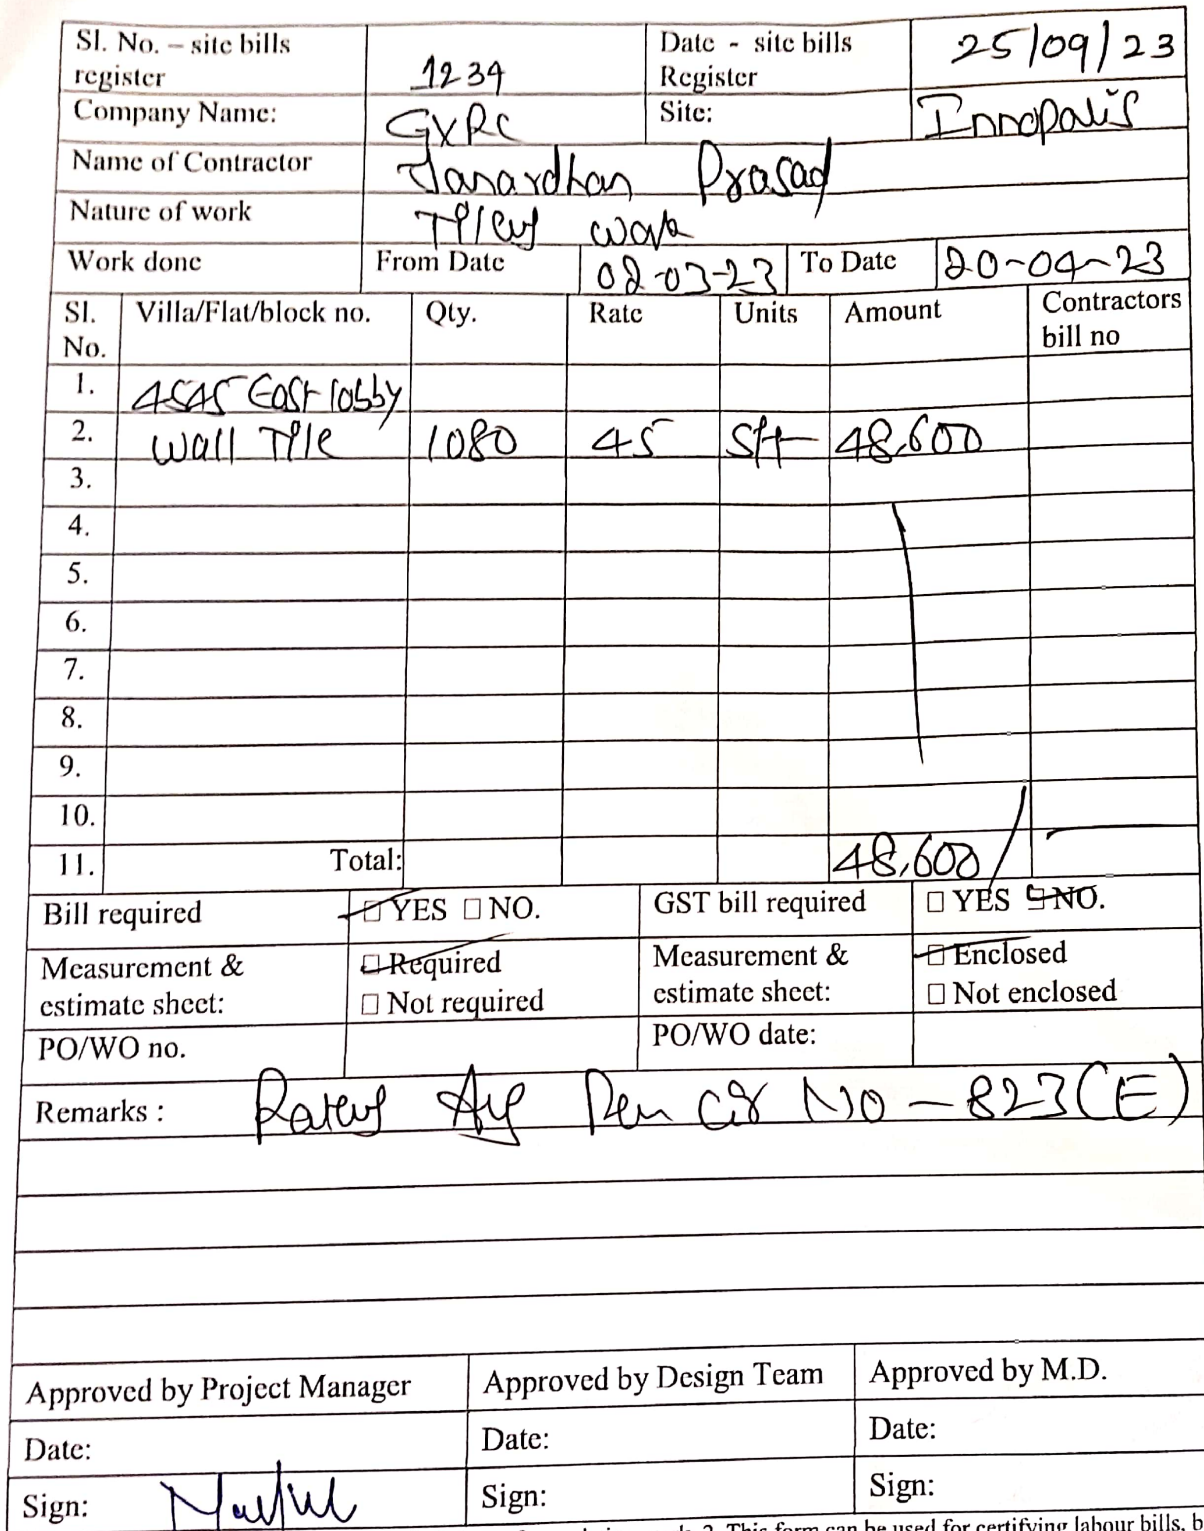 Sl. No. – site bills register 1234 Date - site bills Register 25/09/23
Company Name: GXRC Site: Innopalis
Name of Contractor Janardhan Prasad
Nature of work Tiles work
Work done From Date 02-03-23 To Date 20-04-23
Sl. No. Villa/Flat/block no. Qty. Rate Units Amount Contractors bill no
1. 4545 East lobby
2. Wall Tile 1080 45 Sft 48,600
3.
4.
5.
6.
7.
8.
9.
10.
11. Total: 48,600/
Bill required YES NO. GST bill required YES NO.
Measurement & estimate sheet: Required Not required Measurement & estimate sheet: Enclosed Not enclosed
PO/WO no. PO/WO date:
Remarks : Cir No - 823(E)
Approved by Project Manager Approved by Design Team Approved by M.D.
Date: Date: Date:
Sign: Sign: Sign:
2. This form can be used for certifying labour bills, b